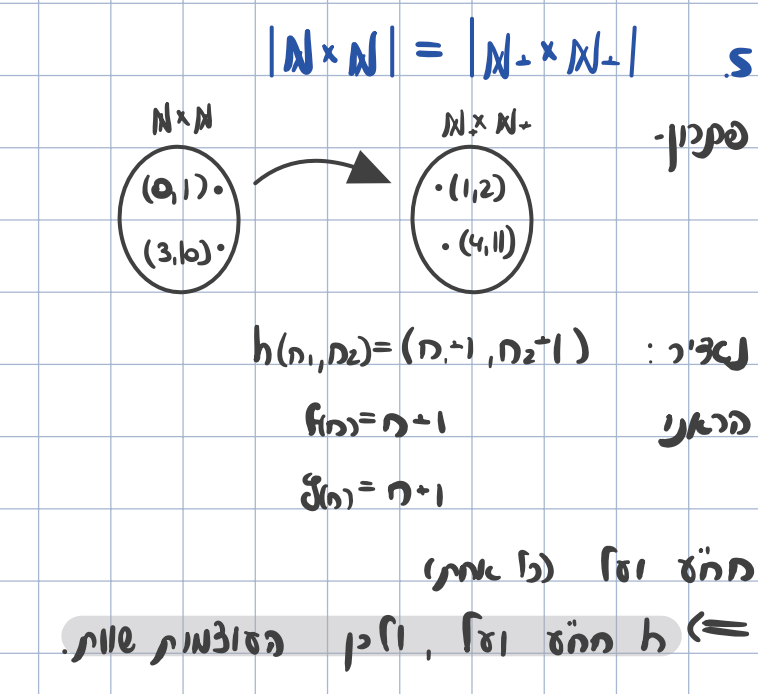 5. |ℕ×ℕ| = |ℕ₊×ℕ₊|
פתרון-
ℕ×ℕ ℕ₊×ℕ₊
(0,1) (1,2)
(3,10) (4,11)
נגדיר: h(n₁,n₂)=(n₁+1,n₂+1)
הראנו f(n)=n+1
g(n)=n+1
חח"ע ועל (כל אחת)
=> h חח"ע ועל, ולכן העוצמות שוות.